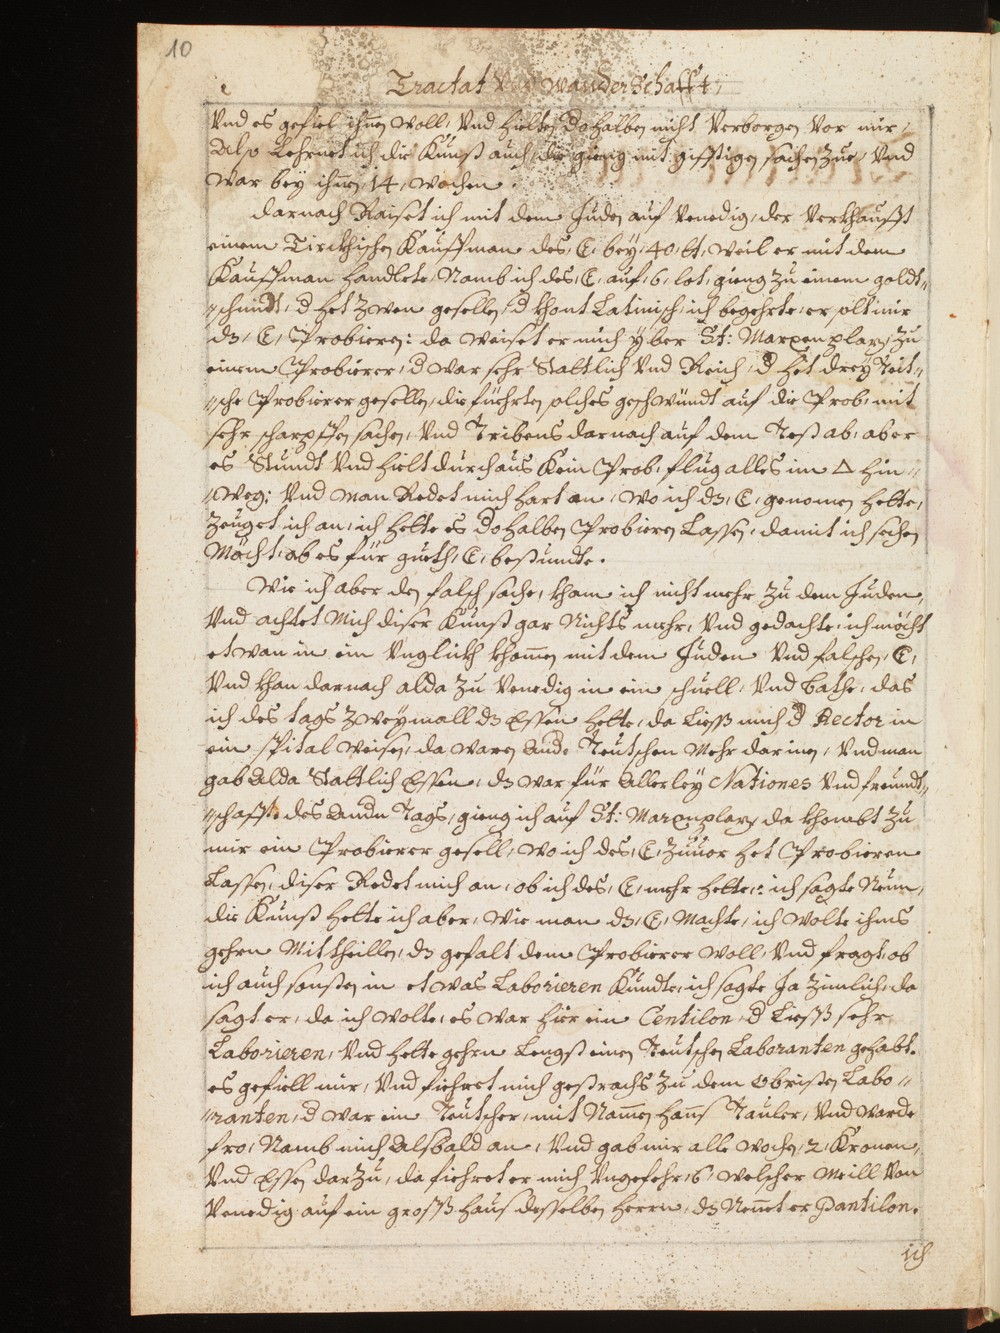 10
Tractat Vnd Wanderschafft,
Vnd es gefiel ihnen woll, Vnd hielten dohalben nicht Verborgen Vor mir,
Also Lehrnet ich die Kunst auch, die gieng mit gifftigen sachen zue, Vnd
war bey ihnen, 14, wochen.
Darnach Raiset ich mit dem Juden auf Venedig, der Verkhaufft
einem Tirckhischen Kauffman des, C, bey, 40, lt, weil er mit dem
Kauffman handlete, Namb ich des, C, auf, 6, lot, gieng zu einem goldt„
„schmidt, d het zwen gesellen, d khont Latinisch, ich begehrte, er solt mir
dz, C, Probieren: da weiset er mich yber St: Marxenplaz, zu
einem Probierer, d war sehr Stattlich Vnd Reich, d het drey Teüt„
„sche Probierer gesellen, die füehrten solches geschwündt auf die Prob, mit
sehr scharpffen sachen, Vnd Tribens darnach auf dem Test ab, aber
es Stundt Vnd hielt durchaus Kein Prob, flüg alles im △ hin„
„weg: Vnd man Redet mich hart an, wo ich dz, C, genomen hette,
zeuget ich an, ich hette es dohalben Probieren Lassen, damit ich sechen
Möcht, ob es für gueth, C, bestundte.
Wie ich aber den falsch sache, kham ich nicht mehr zu dem Juden,
Vnd achtet Mich diser Kunst gar Nichts mehr, Vnd gedachte, ich möcht
etwan in ein Vnglickh khommen mit dem Juden Vnd falschen, C,
Vnd kham darnach alda zu Venedig in ein schuell, Vnd bathe, das
ich des tags zweymall dz Essen hette, da Liesß mich d Rector in
ein spital weisen, da waren And. Teutschen Mehr darinen, Vnd man
gab Alda Stattlich Essen, dz war für Allerley Nationes Vnd freundt„
„schafft. des Andn Tags, gieng ich auf St: Marxenplaz, da khombt zu
mir ein Probierer gesell, wo ich des, C, zuuor het Probieren
Lassen, diser Redet mich an, ob ich des, C, mehr hette: ich sagte Nein,
die Kunst hette ich aber, wie man dz, C, Machte, ich wolte ihms
gehrn Mittheillen, dz gefalt dem Probierer woll, Vnd fragt, ob
ich auch sonsten in etwas Laborieren Kundte, ich sagte Ja zimlich, da
sagt er, da ich wolte, es war hier ein Centilon, d Liesß sehr
Laborieren, Vnd hette gehrn Lengst einen Teutschen Laboranten gehabt.
es gefiell mir, Vnd fiehret mich gestrachs zu dem Obristen Labo„
„ranten, d war ein Teutscher, mit Namen Hanns Tauler, Vnd warde
fro, Namb mich Alsbald an, Vnd gab mir alle wochen, 2, Kronen,
Vnd Essen darzu, da fiehret er mich Vngefehr, 6, welscher Meill Von
Venedig auf ein grosß Haus desselben Herrn, dz Nennet er Pantilon.
ich